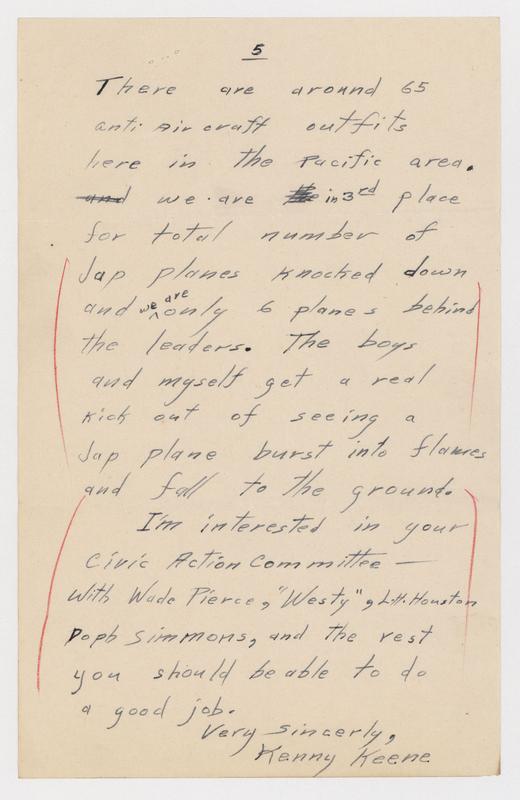 5
There are around 65
anti Air craft outfits
here in the Pacific area.
and we are the in 3rd place
for total number of
Jap planes knocked down
and we are only 6 planes behind
the leaders. The boys
and myself get a real
kick out of seeing a
Jap plane burst into flames
and fall to the ground.
I'm interested in your
Civic Action Committee —
With Wade Pierce, "Westy", L.H. Houston
Doph Simmons, and the rest
you should be able to do
a good job.
Very sincerely,
Kenny Keene